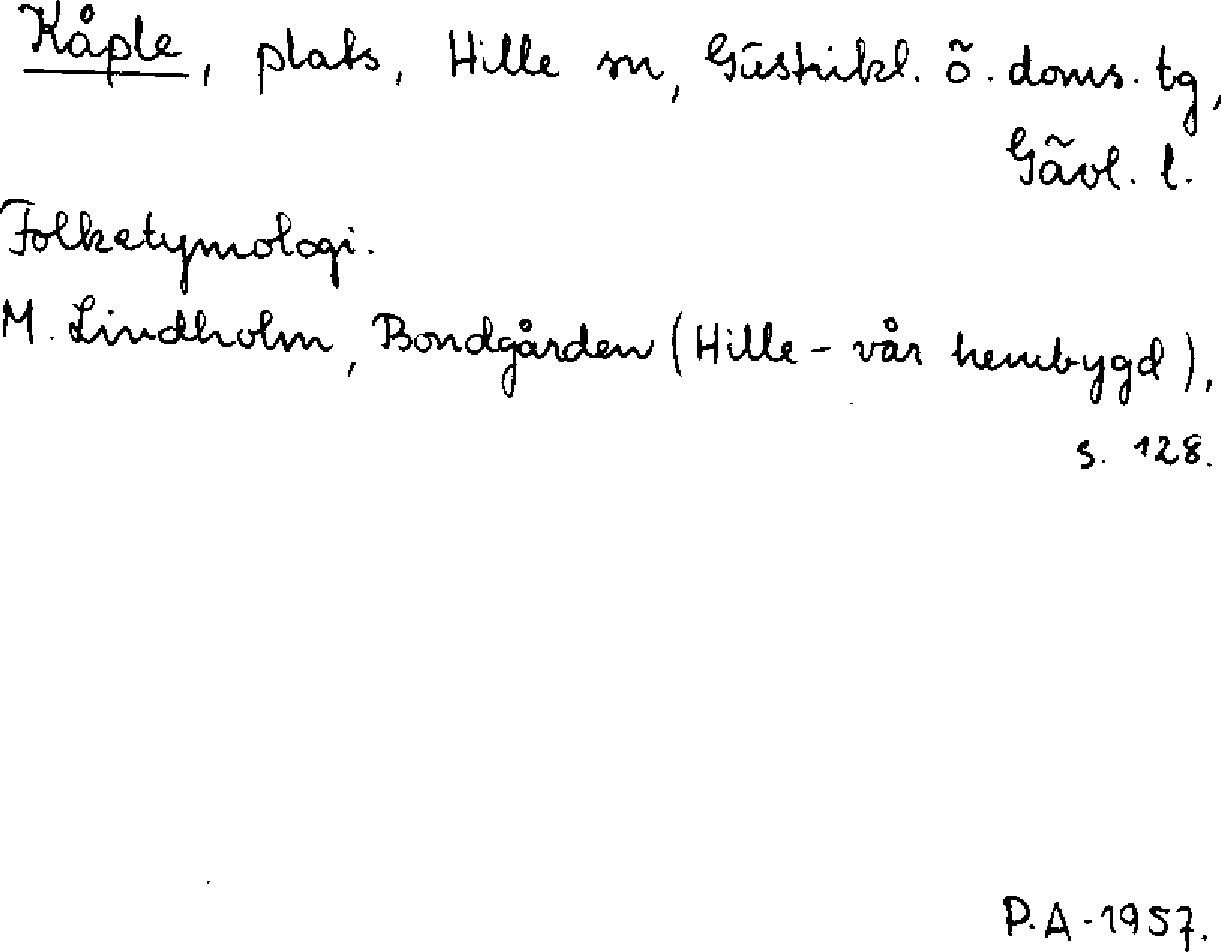 Kåple, plats, Hille sn, Gästrikl. ö. doms. tg,
Gävl. l.
Folketymologi.
M. Lindholm, Bondgården (Hille - vår hembygd),
s. 128.
P.A - 1957.